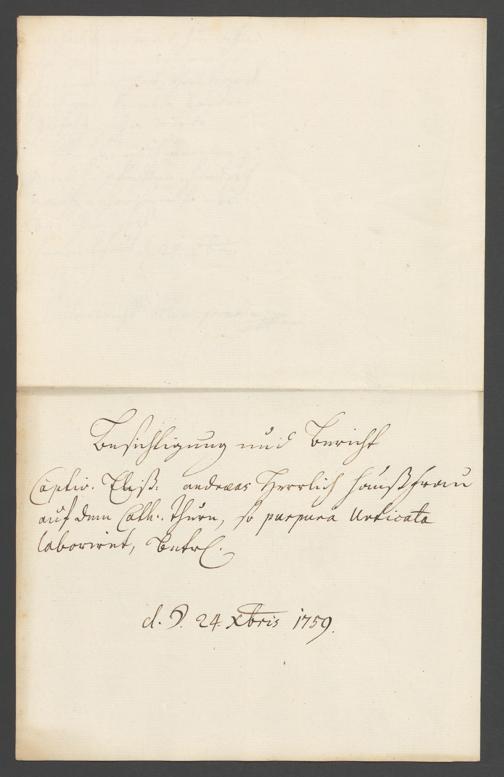 Besichtigung und Bericht
Captiv. Elis. andreas Herrlich haußfrau
auf dem Cath. Thurn, so purpura Urticata
laborirt, Betr.
d. d. 24 Xbris 1759.